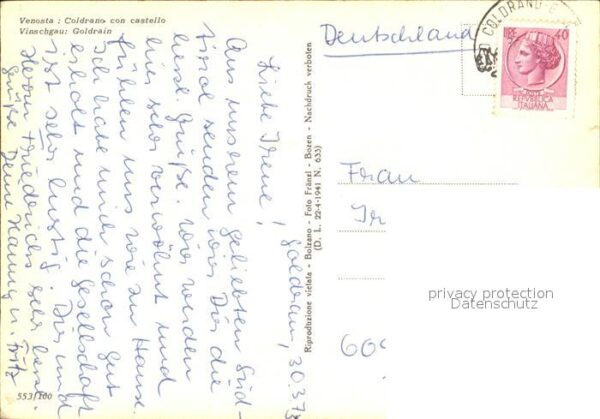 Venosta : Coldrano con castello
Vinschgau: Goldrain
Goldrain, 30.3.
Liebe Irene!
Aus unserem geliebten Süd-
tirol senden wir Dir die
liebe Grüße. Wir werden
hier sehr verwöhnt und
fühlen uns wie zu Hause.
Ich habe mich schon gut
erholt und die Gesellschaft
ist sehr lustig. Dir und
Herrn Friedrichs sehr liebe
Grüße Deine Hanny u. Fritz
553/100
Riproduzione vietata - Bolzano - Foto Fränzl - Bozen - Nachdruck verboten
(D. L. 22-4-1941 N. 633)
Deutschland
COLDRANO
LIRE 40
POSTE
REPVBBLICA
ITALIANA
Frau
Ir
60
privacy protection
Datenschutz